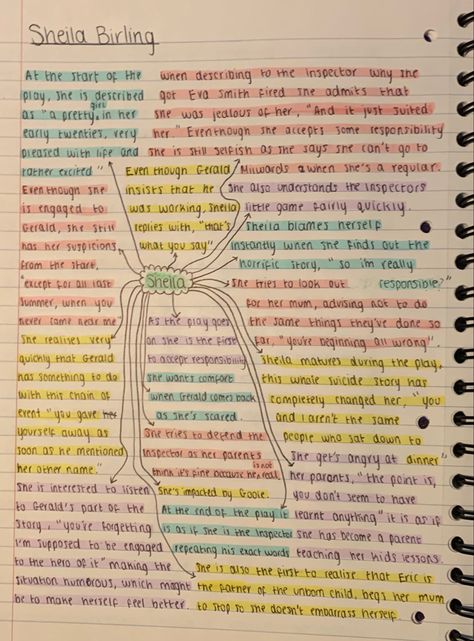 Sheila Birling
At the start of the
play, she is described
as "a pretty girl in her
early twenties, very
pleased with life and
rather excited"
when describing to the inspector why she
got Eva Smith fired she admits that
she was jealous of her, "And it just suited
her." Eventhough she accepts some responsibility
she is still selfish as she says she can't go to
Milwards when she's a regular.
Even though Gerald
insists that he
was working, Sheila
replies with, "that's
what you say"
She also understands the Inspectors
little game fairly quickly.
Even though she
is engaged to
Gerald, she still
has her suspicions
from the start,
"except for all last
summer, when you
never came near me"
Sheila blames herself
instantly when she finds out the
horrific story, "so i'm really
responsible?"
Sheila
She tries to look out
for her mum, advising not to do
the same things they've done so
far, "you're beginning all wrong".
She realises very
quickly that Gerald
has something to do
with this chain of
event "you gave
yourself away as
soon as he mentioned
her other name."
As the play goes
on she is the first
to accept responsibility
She wants comfort
when Gerald comes back
as she's scared.
Sheila matures during the play,
this whole suicide story has
completely changed her, "you
and I aren't the same
people who sat down to
dinner"
She tries to defend the
Inspector as her parents
think it's fine because he is not real
She's impacted by Goole.
She get's angry at
her parents, "the point is,
you don't seem to have
learnt anything" it is as if
she has become a parent
teaching her kids lessons.
She is interested to listen
to Gerald's part of the
story, "you're forgetting
I'm supposed to be engaged
to the hero of it" making the
situation humorous, which might
be to make herself feel better.
At the end of the play it
is as if she is the Inspector
repeating his exact words
She is also the first to realise that Eric is
the father of the unborn child, begs her mum
to stop so she doesn't embarrass herself.